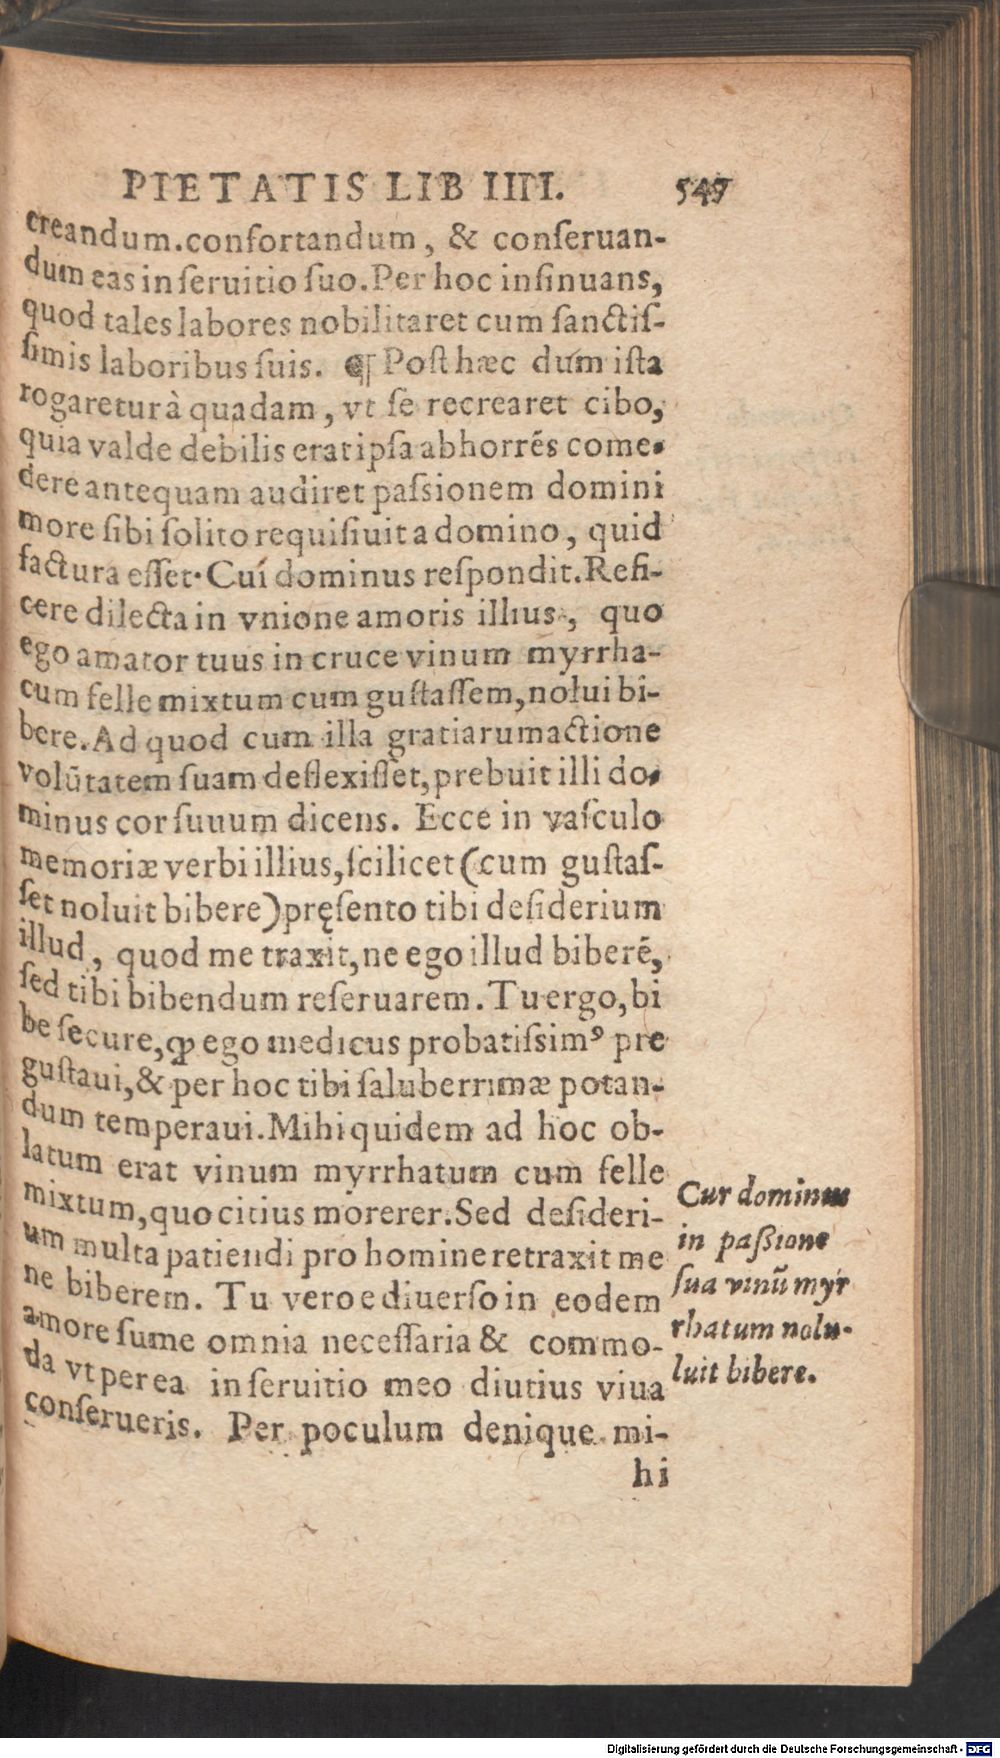 PIETATIS LIB IIII. 547
creandum.confortandum, & conſeruan-
dum eas in ſeruitio ſuo.Per hoc inſinuans,
quod tales labores nobilitaret cum ſanctiſ-
ſimis laboribus ſuis. ¶ Poſt hæc dum iſta
rogareturà quadam, vt ſe recrearet cibo,
quia valde debilis erat ipſa abhorrés come-
dere antequam audiret paſsionem domini
more ſibi ſolito requiſiuit a domino, quid
factura eſſet. Cuí dominus reſpondit.Refi-
cere dilecta in vnione amoris illius, quo
ego amator tuus in cruce vinum myrrha-
cum felle mixtum cum guſtaſſem, nolui bi-
bere.Ad quod cum illa gratiarumactione
volūtatem ſuam deflexiſſet,prebuit illi do-
minus cor ſuuum dicens. Ecce in vaſculo
memoriæ verbi illius,ſcilicet (cum guſtaſ-
ſet noluit bibere)pręſento tibi deſiderium
illud, quod me traxit,ne ego illud biberē,
ſed tibi bibendum reſeruarem.Tu ergo,bi
be ſecure,ꝙ ego medicus probatiſsimꝰ pre
guſtaui,& per hoc tibi ſaluberrimæ potan-
dum temperaui.Mihi quidem ad hoc ob-
latum erat vinum myrrhatum cum felle
mixtum,quo citius morerer.Sed deſideri-
um multa patiendi pro homine retraxit me
ne biberem. Tu vero ediuerſo in eodem
amore ſume omnia neceſſaria & commo-
da vt per ea in ſeruitio meo diutius viua
conſerueris. Per poculum denique mi-
hi
Cur dominus
in paßione
ſua vinū myr
rhatum nolu-
luit bibere.
Digitalisierung gefördert durch die Deutsche Forschungsgemeinschaft - DFG